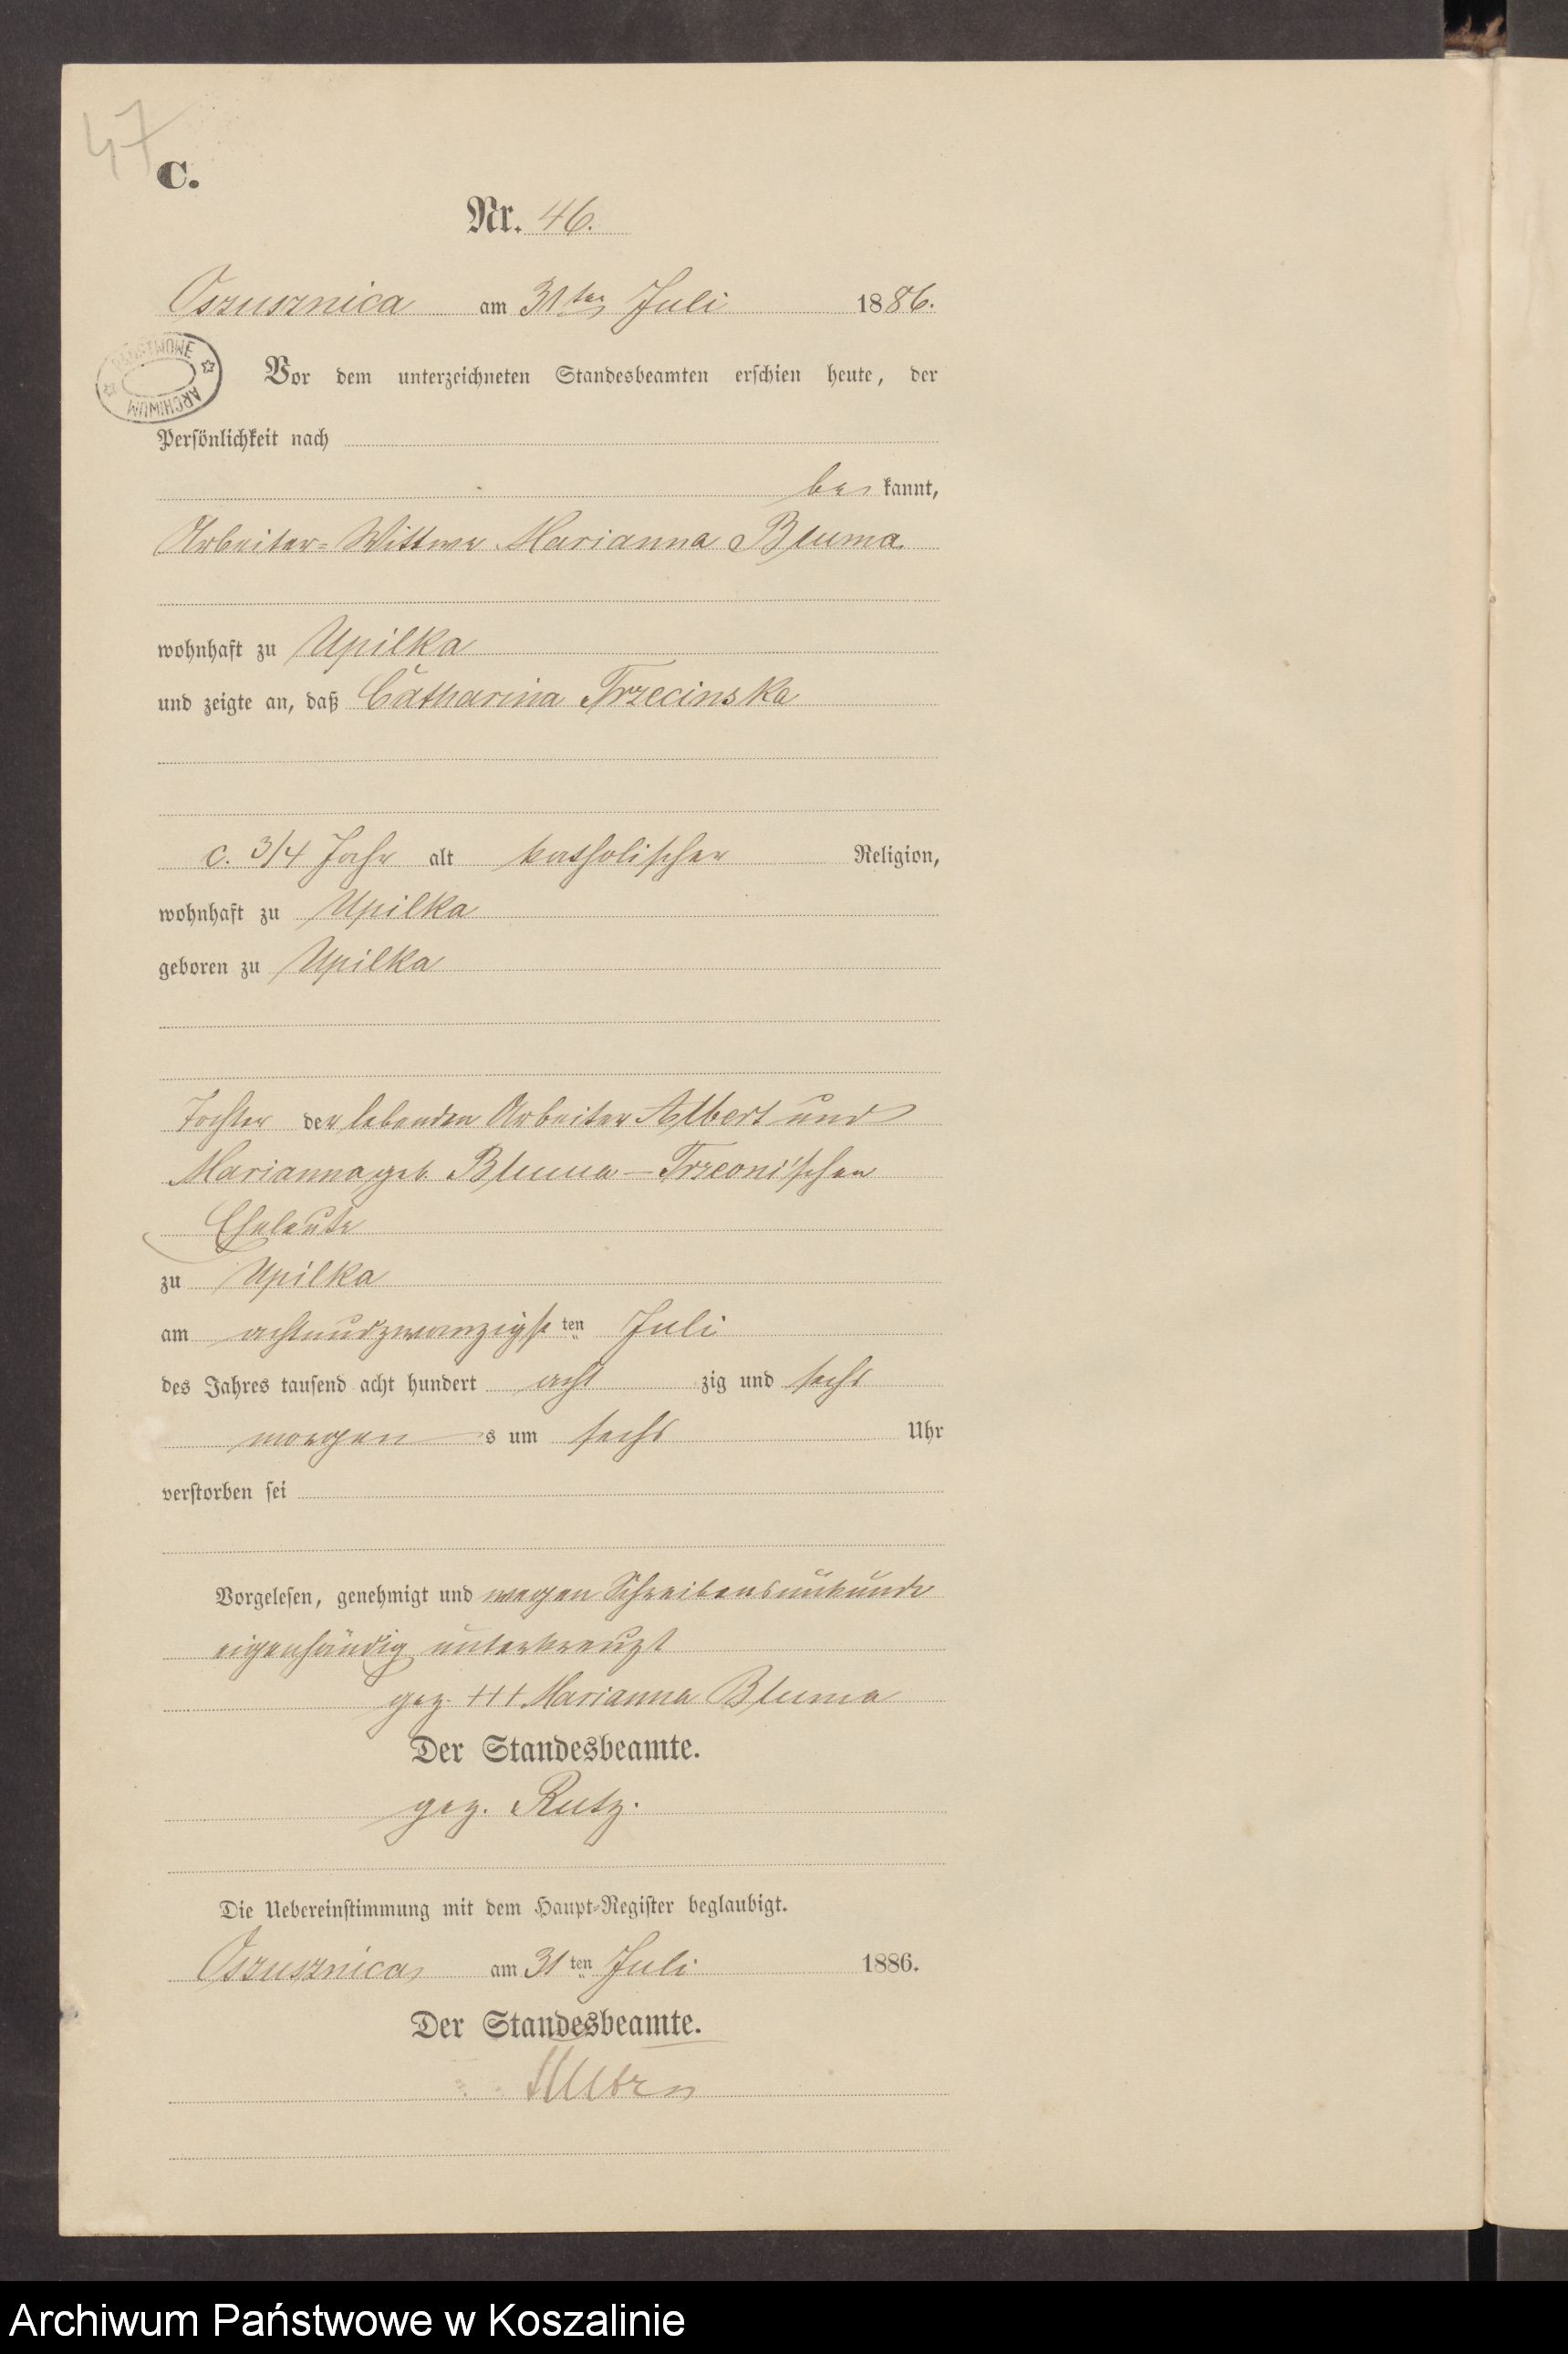 47
C.
Nr. 46.
Oszusznica am 31ten Juli 1886.
PAŃSTWOWE ARCHIWUM
Vor dem unterzeichneten Standesbeamten erschien heute, der
Persönlichkeit nach
be kannt,
Arbeiter-Wittwe Marianna Bluma
wohnhaft zu Upilka
und zeigte an, daß Catharina Trzecinska
c. 3/4 Jahr alt katholischer Religion,
wohnhaft zu Upilka
geboren zu Upilka
Tochter der lebenden Arbeiter Albert und
Marianna geb. Bluma - Trzconi'schen
Eheleute
zu Upilka
am achtundzwanzigsten Juli
des Jahres tausend acht hundert acht zig und sechs
morgens um sechs Uhr
verstorben sei
Vorgelesen, genehmigt und wegen Schreibensunkunde
eigenhändig unterkreuzt
gez. +++ Marianna Bluma
Der Standesbeamte.
gez. Rutz.
Die Uebereinstimmung mit dem Haupt-Register beglaubigt.
Oszusznica am 31ten Juli 1886.
Der Standesbeamte.
Archiwum Państwowe w Koszalinie